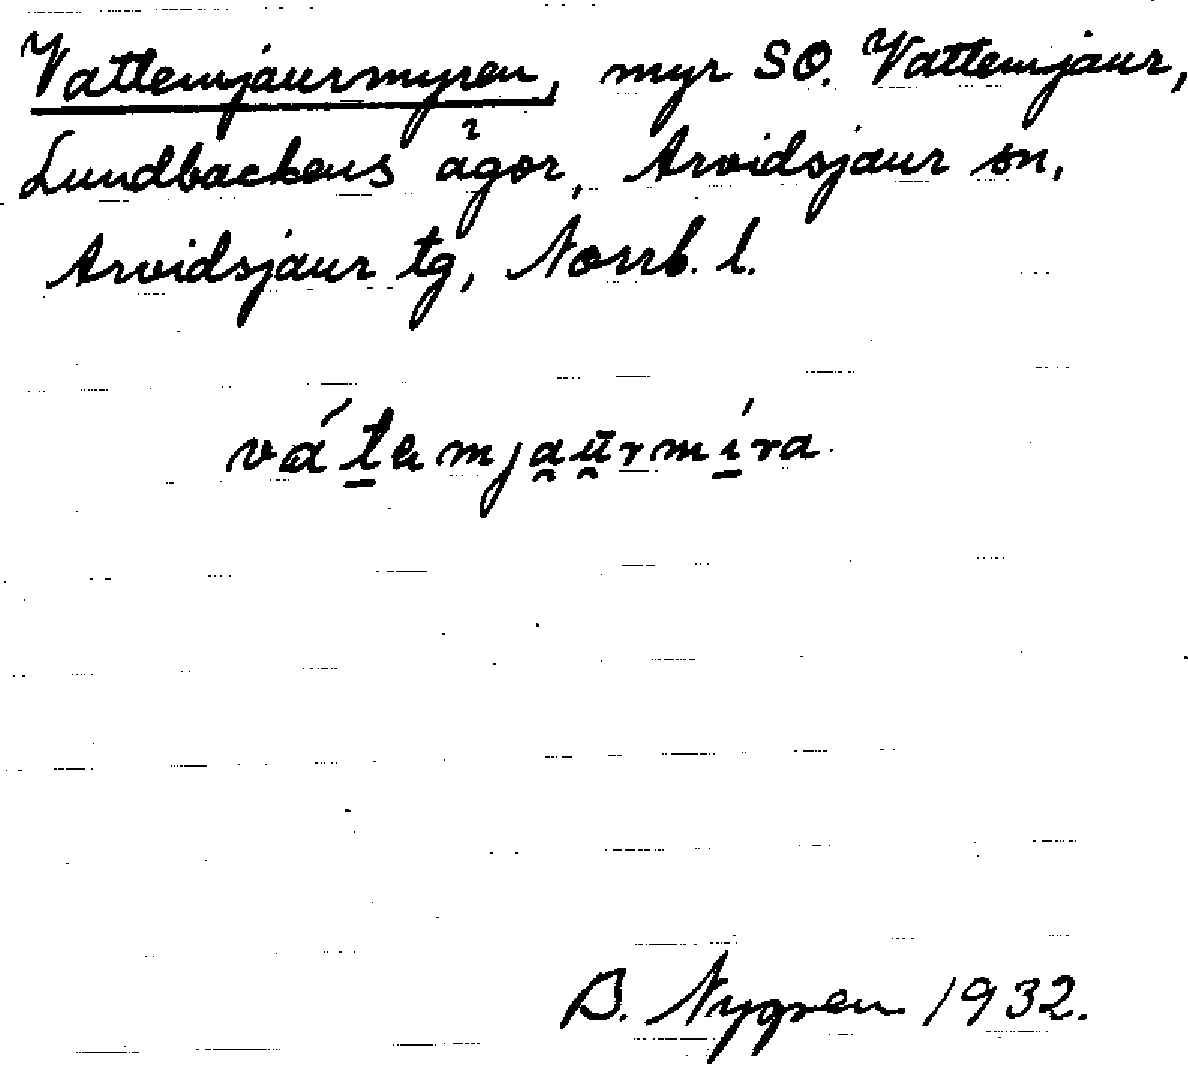 Vattemjaurmyren, myr SO. Vattemjaur,
Lundbackens ägor, Arvidsjaur sn,
Arvidsjaur tg, Norrb. l.
vátamjau̯rmíra
B. Nygren 1932.